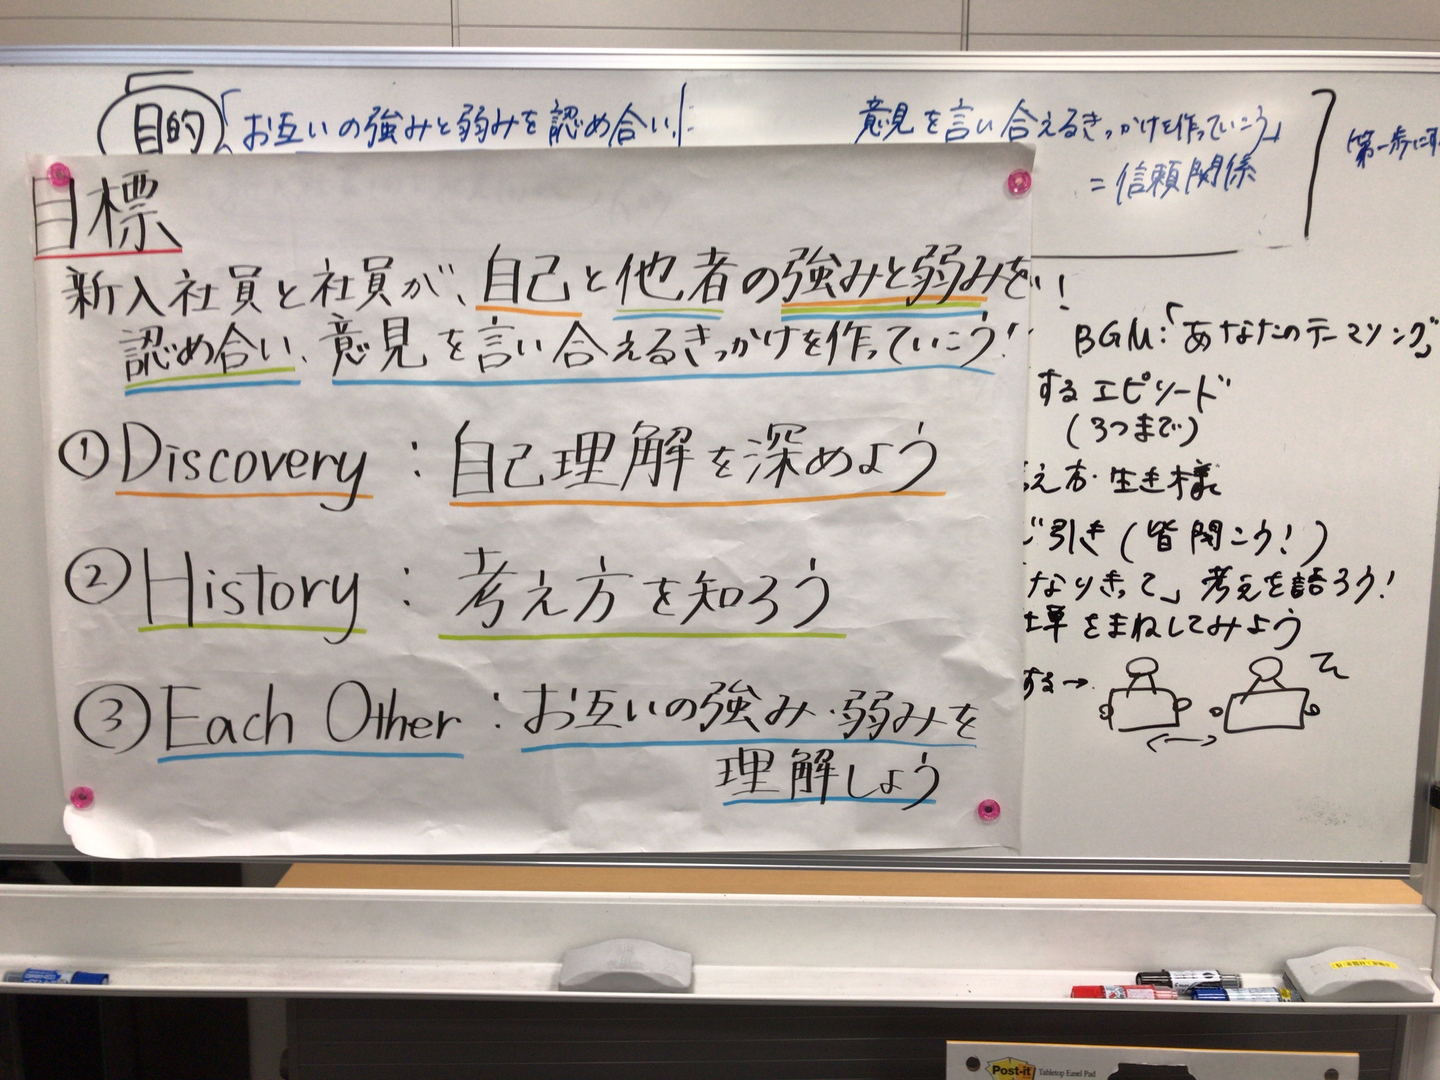 目的 「お互いの強みと弱みを認め合い、
意見を言い合えるきっかけを作っていこう」
=信頼関係
目標
新入社員と社員が、自己と他者の強みと弱みを
認め合い、意見を言い合えるきっかけを作っていこう!
① Discovery : 自己理解を深めよう
② History : 考え方を知ろう
③ Each Other : お互いの強み・弱みを
理解しよう
い!
BGM:「あなたのテーマソング」
するエピソード
(3つまで)
え方・生き様
引き(皆聞こう!)
なりきって」考えを語ろう!
をまねしてみよう
する→
Post-it
Tabletop Easel Pad